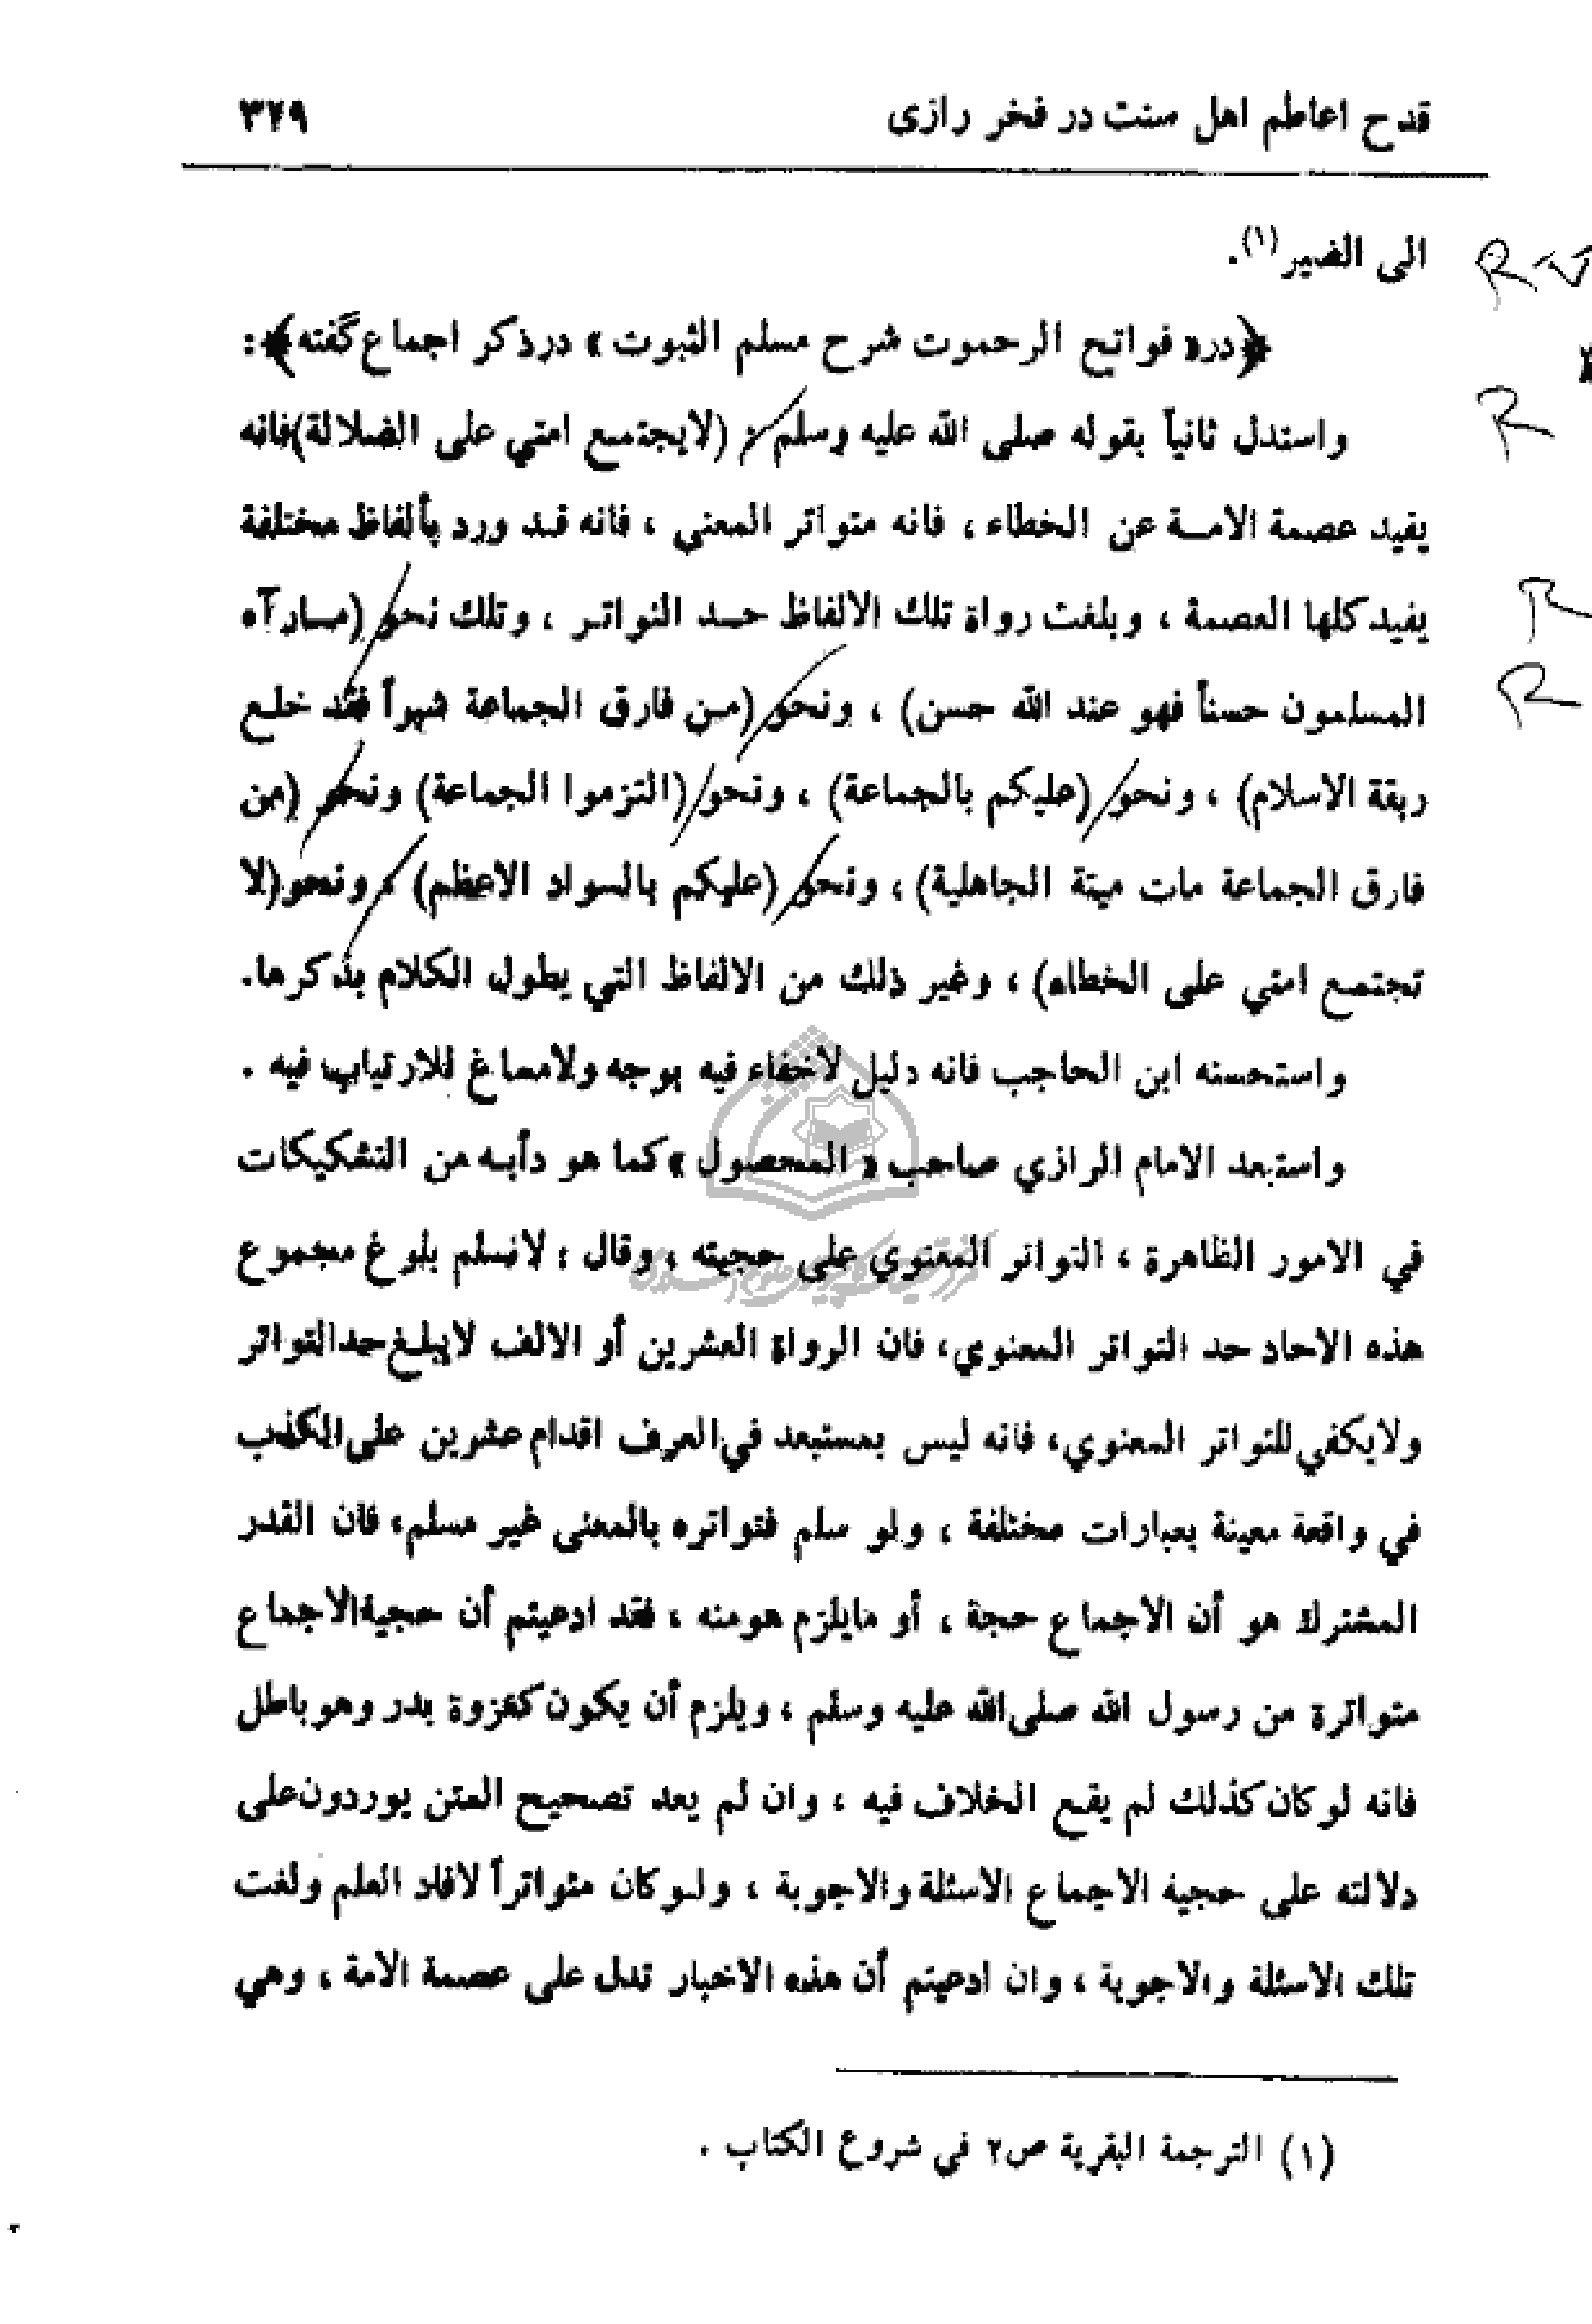 قدح اعاظم اهل سنت در فخر رازی ۳۲۹
الى الضير (۱).
﴿در« فواتح الرحموت شرح مسلم الثبوت » درذكر اجماع گفته﴾:
واستدل ثانياً بقوله صلى الله عليه وسلم : (لايجتمع امتي على الضلالة)فانه
يفيد عصمة الامة عن الخطاء ، فانه متواتر المعنى ، فانه قد ورد بألفاظ مختلفة
يفيد كلها العصمة ، وبلغت رواة تلك الالفاظ حد التواتر ، وتلك نحو (مارآه
المسلمون حسناً فهو عند الله حسن) ، ونحو (من فارق الجماعة شبراً فقد خلع
ربقة الاسلام) ، ونحو (عليكم بالجماعة) ، ونحو (التزموا الجماعة) ونحو (من
فارق الجماعة مات ميتة الجاهلية) ، ونحو (عليكم بالسواد الاعظم) ، ونحو(لا
تجتمع امتي على الخطاء) ، وغير ذلك من الالفاظ التي يطول الكلام بذكرها.
واستحسنه ابن الحاجب فانه دليل لاخفاء فيه بوجه ولامساغ للارتياب فيه .
واستبعد الامام الرازي صاحب « المحصول » كما هو دأبه من التشكيكات
في الامور الظاهرة ، التواتر المعنوي على حجيته ، وقال : لانسلم بلوغ مجموع
هذه الاحاد حد التواتر المعنوي، فان الرواة العشرين أو الالف لايبلغ حد التواتر
ولايكفي للتواتر المعنوي، فانه ليس بمستبعد في العرف اقدام عشرين على الكذب
في واقعة معينة بعبارات مختلفة ، ولو سلم فتواتره بالمعنى غير مسلم، فان القدر
المشترك هو أن الاجماع حجة ، أو مايلزم هومنه ، فقد ادعيتم أن حجية الاجماع
متواترة من رسول الله صلى الله عليه وسلم ، ويلزم أن يكون كغزوة بدر وهو باطل
فانه لو كان كذلك لم يقع الخلاف فيه ، وان لم يعد تصحيح المتن يوردون على
دلالته على حجية الاجماع الاسئلة والاجوبة ، ولو كان متواتراً لافاد العلم ولغت
تلك الاسئلة والاجوبة ، وان ادعيتم أن هذه الاخبار تدل على عصمة الامة ، وهي
(۱) الترجمة البقرية ص۲ في شروع الكتاب .
R
R
R
R